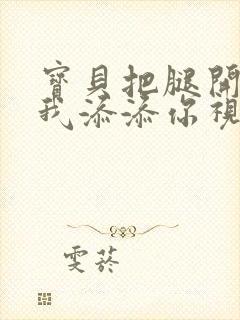 寶貝把腿開
我添添你視
雯菸